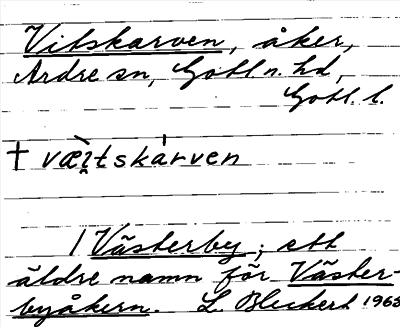 Vitskarven, åker,
Ardre sn, Gotl. n. hd,
Gotl. l.
† væi̯tskarven
I Västerby; ett
äldre namn för Väster-
byåkern. L. Bleckert 1968